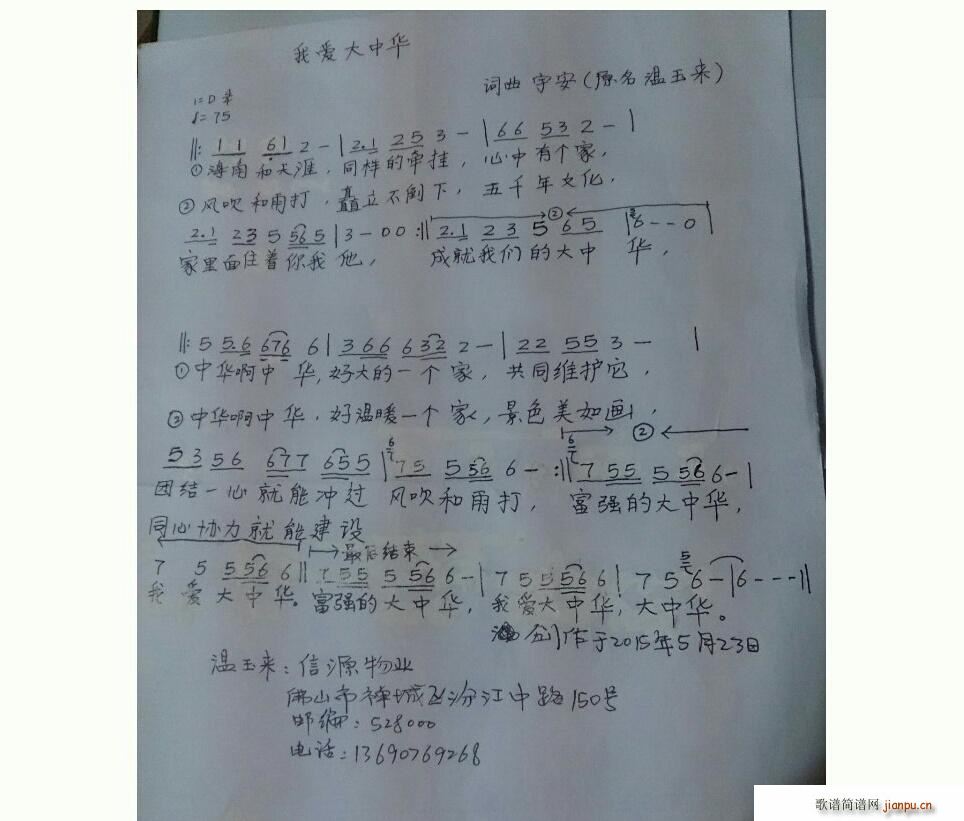 我爱大中华
词曲 宇安(原名温玉来)
1=D 4/4
♩=75
‖: 1 1 6 1 2 - | 2.1 2 5 3 - | 6 6 5 3 2 - |
①海南和天涯,同样的牵挂,心中有个家,
②风吹和雨打,矗立不倒下,五千年文化,
②
2.1 2 3 5 5 6 5 | 3 - 0 0 :‖ 2.1 2 3 5 6 5 | 6 - - 0 |
家里面住着你我他, 成就我们的大中华,
‖: 5 5.6 6 7 6 6 | 3 6 6 6 3 2 2 - | 2 2 5 5 3 - |
①中华啊中华,好大的一个家,共同维护它,
②中华啊中华,好温暖一个家,景色美如画,
②
5 3 5 6 6 7 7 6 5 5 | 7 5 5 5 6 6 - :‖ 7 5 5 5 5 6 6 - |
团结一心就能冲过 风吹和雨打, 富强的大中华,
同心协力就能建设
最后结束
7 5 5 5 6 6 ‖ 7 5 5 5 5 6 6 - | 7 5 5 5 6 6 | 7 5 6 - | 6 - - - ‖
我爱大中华。富强的大中华,我爱大中华,大中华。
创作于2015年5月23日
温玉来:信源物业
佛山市禅城区汾江中路150号
邮编:528000
电话:13690769268
歌谱简谱网 jianpu.cn